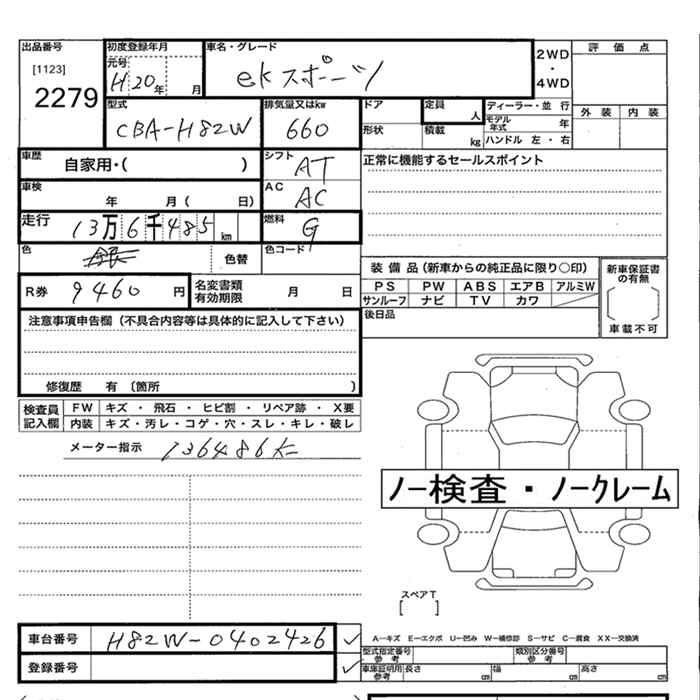 出品番号 初度登録年月 車名・グレード 2WD・4WD 評価点
[1123] 元号 H20年 月 ekスポーツ
2279 型式 排気量又はkw ドア 定員 人 ディーラー・並 行 外装 内装
CBA-H82W 660 形状 積載 kg モデル年式 年
ハンドル 左・右
車歴 自家用・( ) シフト AT 正常に機能するセールスポイント
車検 年 月( 日) AC AC
走行 13万6千485km 燃料 G
色 銀 色替 色コード
装備品(新車からの純正品に限り○印) 新車保証書の有無
R券 9460円 名変書類有効期限 月 日 PS PW ABS エアB アルミW
サンルーフ ナビ TV カワ
注意事項申告欄(不具合内容等は具体的に記入して下さい) 後日品 車載不可
修復歴 有 〔箇所 〕
検査員記入欄 FW キズ・飛石・ヒビ割・リペア跡・X要
内装 キズ・汚レ・コゲ・穴・スレ・キレ・破レ
メーター指示 136486K
ノー検査・ノークレーム
スペアT
[ ]
車台番号 H82W-0402426 A−キズ E−エクボ U−凹み W−補修跡 S−サビ C−腐食 XX−交換済
型式指定番号 参考 類別区分番号 参考
登録番号 車庫証明用 参考 長さ cm 幅 cm 高さ cm